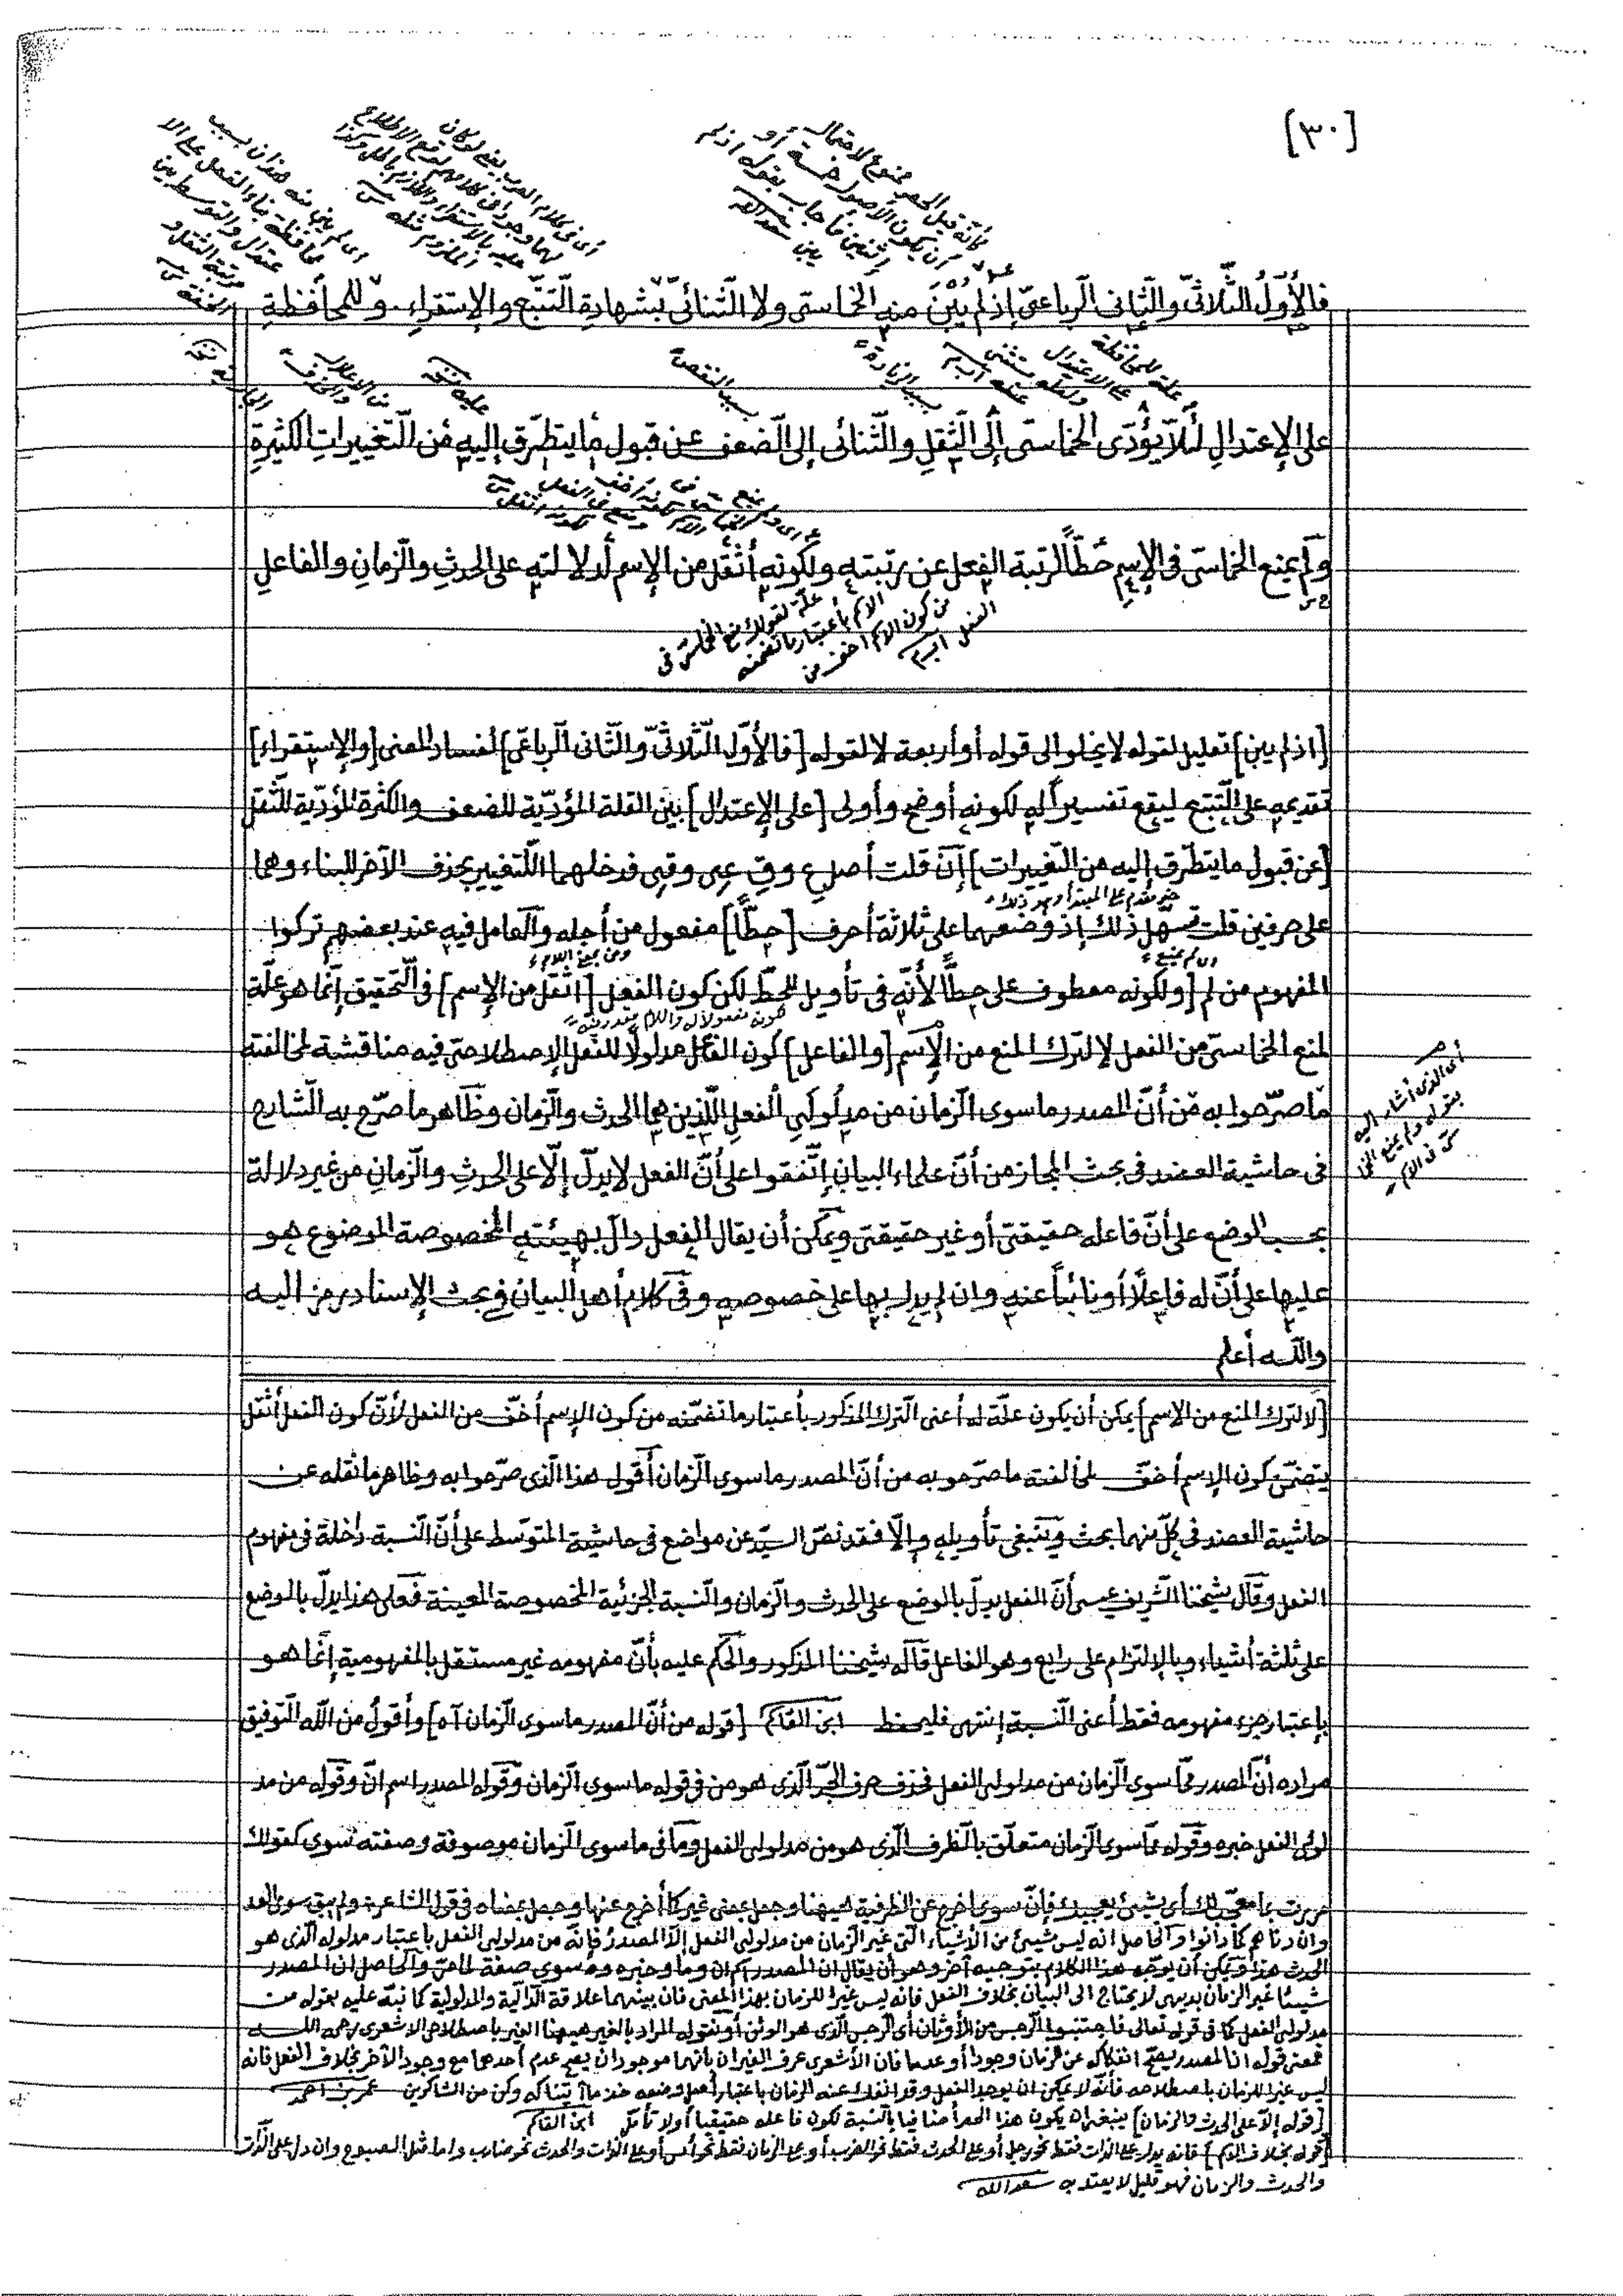 [٣٠]
كأنه قيل الحصر ممنوع لاحتمال
أن يكون الأصول خمسة أو
إثنين فأجاب بقوله اذ لم
يبن سعدالله
أى فى كلام العرب يعنى لو كان
محافظة بناء الفعل على الا
عتدال والتوسط بين
مرتبة الثقل و
الخفة
فالأوّل الثّلاثىّ والثّانى الرباعىّ إذ لم يُبْنَ منه الخماسى ولا الثّنائىّ بشهادة التّتبّع والإستقراء وللمحافظة
علة للمحافظة
على الاعتدال
بسبب الزيادة
بسبب النقصة
من الاعلال
والحذف
على الإعتدال لئلّا يؤدّى الخماسى إلى الثّقل والثّنائى إلى الضعف عن قبول ما يتطرّق إليه من التّغييرات الكثيرة
ولم يمنع الخماسى فى الإسم حطّاً لرتبة الفعل عن رتبته ولكونه أثقل من الإسم لدلالته على الحدث والزمان والفاعل
علة لقوله منع الخماسى فى
الاسم باعتبار ما تضمنه
من كون الاسم اخف من
الفعل
[اذ لم يبن] تعليل لقوله لا يخلو الى قوله أو أربعة لا لقوله [فالأوّل الثّلاثىّ والثّانى الرباعىّ] لفساد المعنى [والإستقراء]
تقديمه على التّتبّع ليقع تفسيراً له لكونه أوضح وأولى [على الإعتدال] بين القلة المؤدّية للضعف والكثرة المؤدّية للثّقل
[عن قبول ما يتطرّق إليه من التّغييرات] إن قلت أصل ع وق عِى وقِى فدخلهما التّغيير بحذف الآخر للبناء وهما
خبر مقدم على المبتدأ وهو ذلك
على حرفين قلت سهل ذلك إذ وضعهما على ثلاثة أحرف [حطّاً] مفعول من أجله والعامل فيه عند بعضهم تركوا
أى لم يمنع
المفهوم من لم [ولكونه معطوف على حطّاً لأنّه فى تأويل للحطّ لكن كون الفعل [اثقل من الإسم] فى التّحقيق إنّما هو علّة
لمنع الخماسىّ من الفعل لا لترك المنع من الإسم [والفاعل] كون الفاعل مدلولاً للفعل الإصطلاحىّ فيه مناقشة لمخالفته
أى الذى أشار اليه
بقوله ولم يمنع الخما
سى فى الاسم
ما صرّحوا به من أنّ المصدر ما سوى الزمان من مدلولى الفعل اللذين هما الحدث والزمان وظاهر ما صرّح به الشارح
فى حاشية العضد فى بحث المجاز من أنّ علماء البيان إتّفقوا على أنّ الفعل لا يدلّ إلّا على الحدث والزمان من غير دلالة
بحسب الوضع على أنّ فاعله حقيقى أو غير حقيقى ويمكن أن يقال الفعل دالّ بهيئته المخصوصة الموضوع هو
عليها على أنّ له فاعلاً أو نائباً عنه وان لم يدل بها على خصوصه وفى كلام أهل البيان فى بحث الإسناد رمز اليه
والله أعلم
[لا لترك المنع من الإسم] يمكن أن يكون علّة له أعنى الترك المذكور بأعتبار ما تضمّنه من كون الإسم أخفّ من الفعل لأنّ كون الفعل أثقل
يتضمّن كون الإسم أخفّ لمخالفته ما صرّحو به من أنّ المصدر ما سوى الزمان أقول هذا الّذى صرّحوا به وظاهر ما نقله عن
حاشية العضد فى كلّ منهما بحث وينبغى تأويله وإلّا فقد نصّ السيّد عن مواضع فى حاشية المتوسّط على أنّ النّسبة داخلة فى مفهوم
الفعل وقال شيخنا الشّريف عيسى أنّ الفعل يدلّ بالوضع على الحدث والزمان والنّسبة الجزئية المخصوصة المعينة فعلى هذا يدلّ بالوضع
على ثلثة أشياء وبالإلتزام على رابع وهو الفاعل قاله شيخنا المذكور والحكم عليه بأنّ مفهومه غير مستقل بالمفهومية إنّما هو
بإعتبار جزء مفهومه فقط أعنى النّسبة إنتهى فليحفظ ابن القاسم [قوله من أنّ المصدر ما سوى الزمان آه] وأقول من الله التّوفيق
مراده أنّ المصدر ممّا سوى الزمان من مدلولى الفعل فحذف حرف الجرّ الّذى هو من فى قوله ما سوى الزمان وقوله المصدر اسم انّ وقوله من مد
لولى الفعل خبره وقوله ممّا سوى الزمان متعلّق بالظرف الّذى هو من مدلولى الفعل وما فى ما سوى الزمان موصوفة وصفته سوى كقولك
مررت بما معجب لك أى بشيئ يعجبك فإنّ سوى اخرج عن الظرفية هيهنا وجعل بمعنى غير كما أخرج عنها وجعل بمعناه فى قول الشاعر ولم يبق سوى العد
وان دنّاهم كما دانوا والحاصل انه ليس شيئ من الأشياء الّتى غير الزمان من مدلولى الفعل إلّا المصدر فإنّه من مدلولى الفعل باعتبار مدلوله الّذى هو
الحدث هذا ويمكن أن يوجّه هذا الكلام بتوجيه آخر وهو أن يقال ان المصدر اسم ان وما خبره وسوى صفة لما والحاصل ان المصدر
شيئا غير الزمان بديهى لا يحتاج الى البيان بخلاف الفعل فانه ليس غيرا للزمان بهذا المعنى فان بينهما علاقة الدالية والمدلولية كما نبّه عليه بقوله من
مدلولى الفعل كما فى قوله تعالى فاجتنبوا الرجس من الأوثان أى الرجس الّذى هو الوثن أو نقوله المراد بالغير هيهنا الغير باصطلاحى الاشعرى رحمه الله
فمعنى قوله ان المصدر يصحّ انفكاكه عن الزمان وجودا أو عدما فان الأشعرى عرف الغيران بأنهما موجودان يصح عدم أحدهما مع وجود الآخر بخلاف الفعل فانه
ليس غيرا للزمان باصطلاحه فأنّه لا يمكن ان يوجد الفعل وقد انفك عنه الزمان باعتبار أصل وضعه خذ ما آتيناك وكن من الشاكرين عمر بن احمد
[قوله إلّا على الحدث والزمان] ينبغى ان يكون هذا الحصر أضافيا بالنسبة لكون فاعله حقيقيا أولا تأمل ابن القاسم
[قوله بخلاف الاسم] فانه يدل على الذات فقط نحو رجل أو على الحدث فقط نحو الضرب أو على الزمان فقط نحو أمس أو على الذات والحدث نحو ضارب واما مثل الصبوح وان دل على الذات
والحدث والزمان فهو قليل لا يعتد به سعدالله